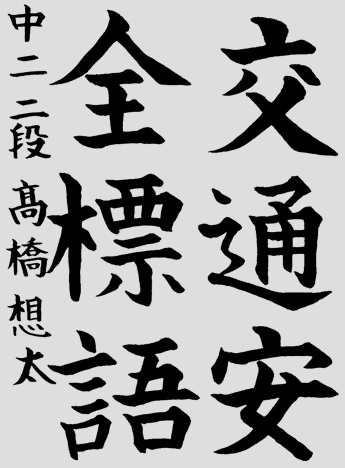 交通安
全標語
中二 二段 髙橋想太